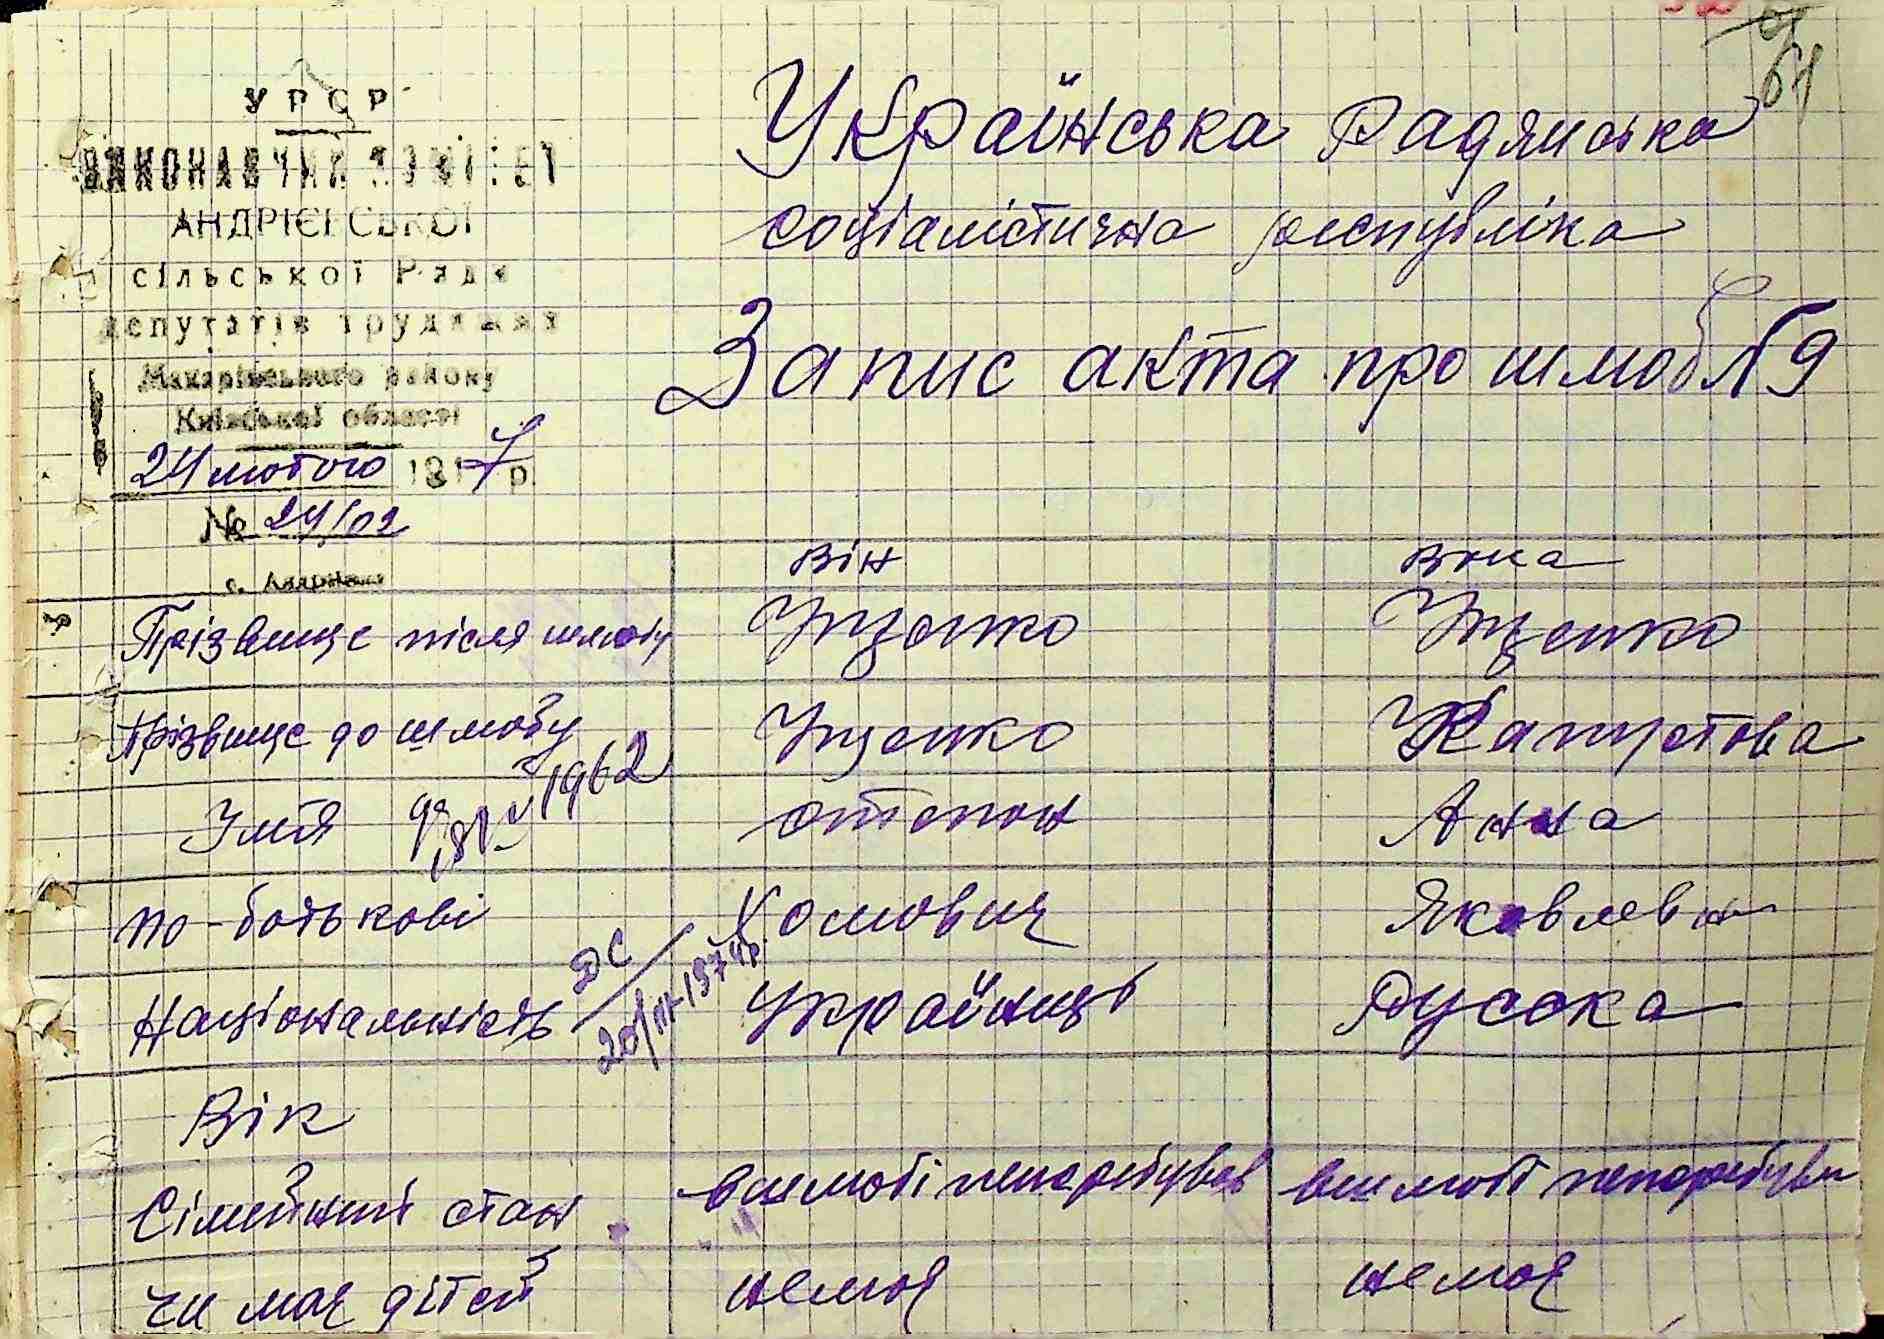 61
УРСР
ВИКОНАВЧИЙ КОМІТЕТ
АНДРІЄВСЬКОЇ
сільської Ради
депутатів трудящих
Макарівського району
Київської області
24 лютого 1947 р.
№ 24/02
с. Андріївка
Українська Радянська
соціалістична республіка
Запис акта про шлюб №9
він вона
Прізвище після шлюбу Іщенко Іщенко
Прізвище до шлюбу Іщенко Капустова
Імя 1962 степан Анна
по-батькові Хомович Яковлевна
Національність ДС Українець Русска
20/III-1974р.
Вік
Сімейний стан в шлюбі неперебував в шлюбі неперебува
чи має дітей немає немає